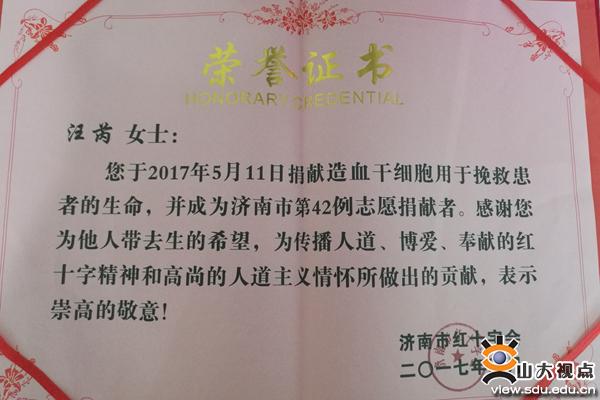 荣誉证书
HONORARY CREDENTIAL
汪芮 女士：
您于2017年5月11日捐献造血干细胞用于挽救患
者的生命，并成为济南市第42例志愿捐献者。感谢您
为他人带去生的希望，为传播人道、博爱、奉献的红
十字精神和高尚的人道主义情怀所做出的贡献，表示
崇高的敬意！
济南市红十字会
二〇一七年
山大视点
view.sdu.edu.cn